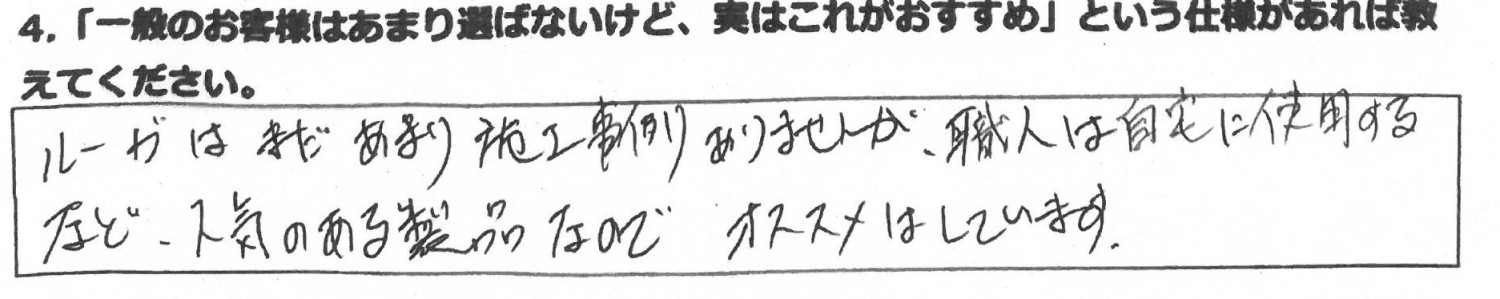 4.「一般のお客様はあまり選ばないけど、実はこれがおすすめ」という仕様があれば教
えてください。
ルーガはまだあまり施工事例ありませんが、職人は自宅に使用する
など、人気のある製品なので オススメはしています。